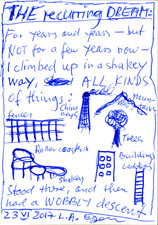 THE recurring DREAM:
For years and years – but
NOT for a few years now –
I climbed up in a shakey
way, ALL KINDS
of things:
Moun-
tains
fences
Chim
neys
Trees
Rollercoasters
Buildings
ladders
Stood there, and then
had a WOBBLY descent
23 VI 2017 L.A.